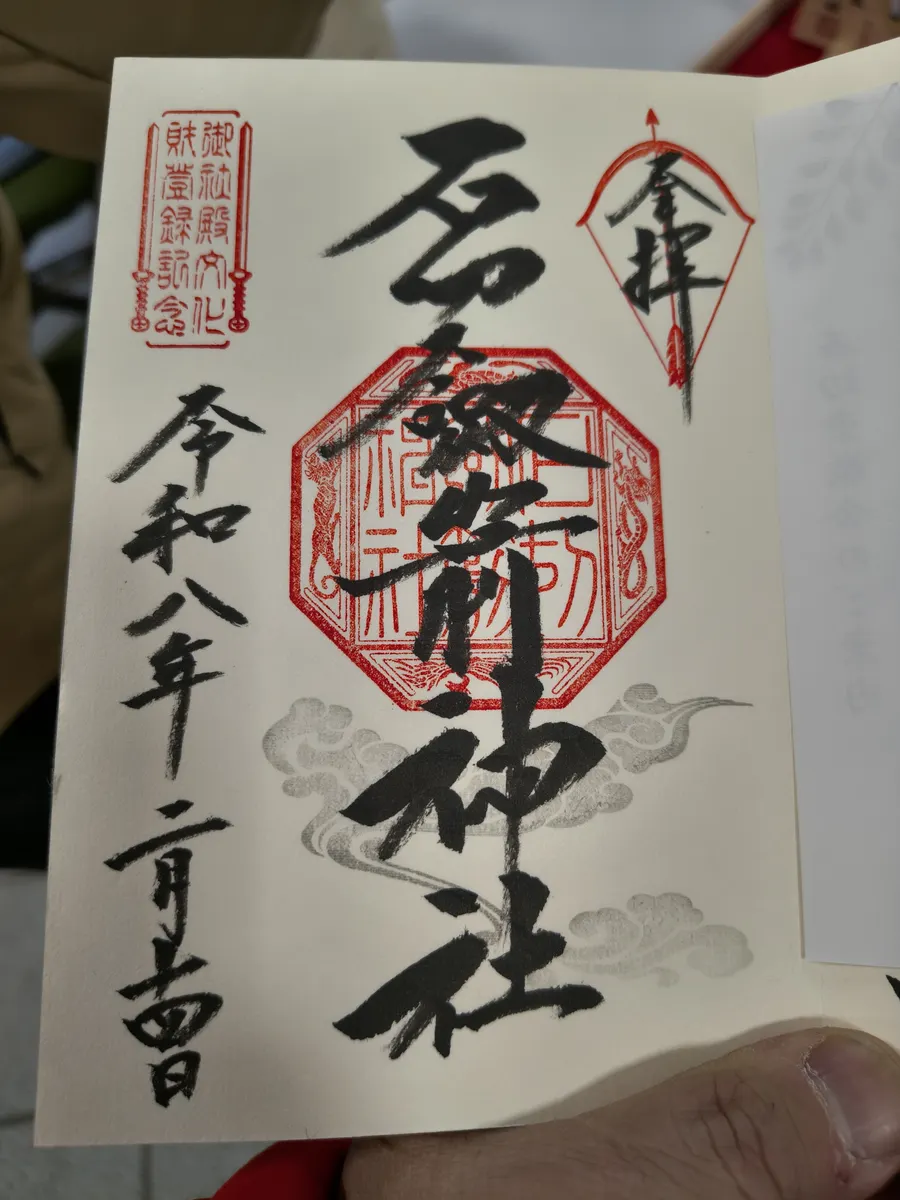 奉拝
石切劔箭神社
御社殿文化
財登録記念
令和八年二月十四日